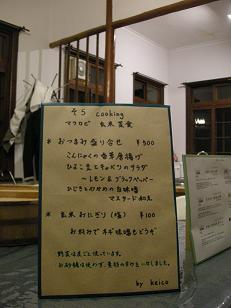 そら cooking
マクロビ 玄米菜食
* おつまみ盛り合せ ¥500
こんにゃくの香草唐揚げ
ひよこ豆とキュウリのサラダ
〜レモン&ブラックペーパー
ひじきとわかめの白味噌
マスタード和え
* 玄米おにぎり(塩) ¥100
お好みでネギ味噌もどうぞ
野菜は皮ごと使っています。
お砂糖は使わず、素材の
by keico